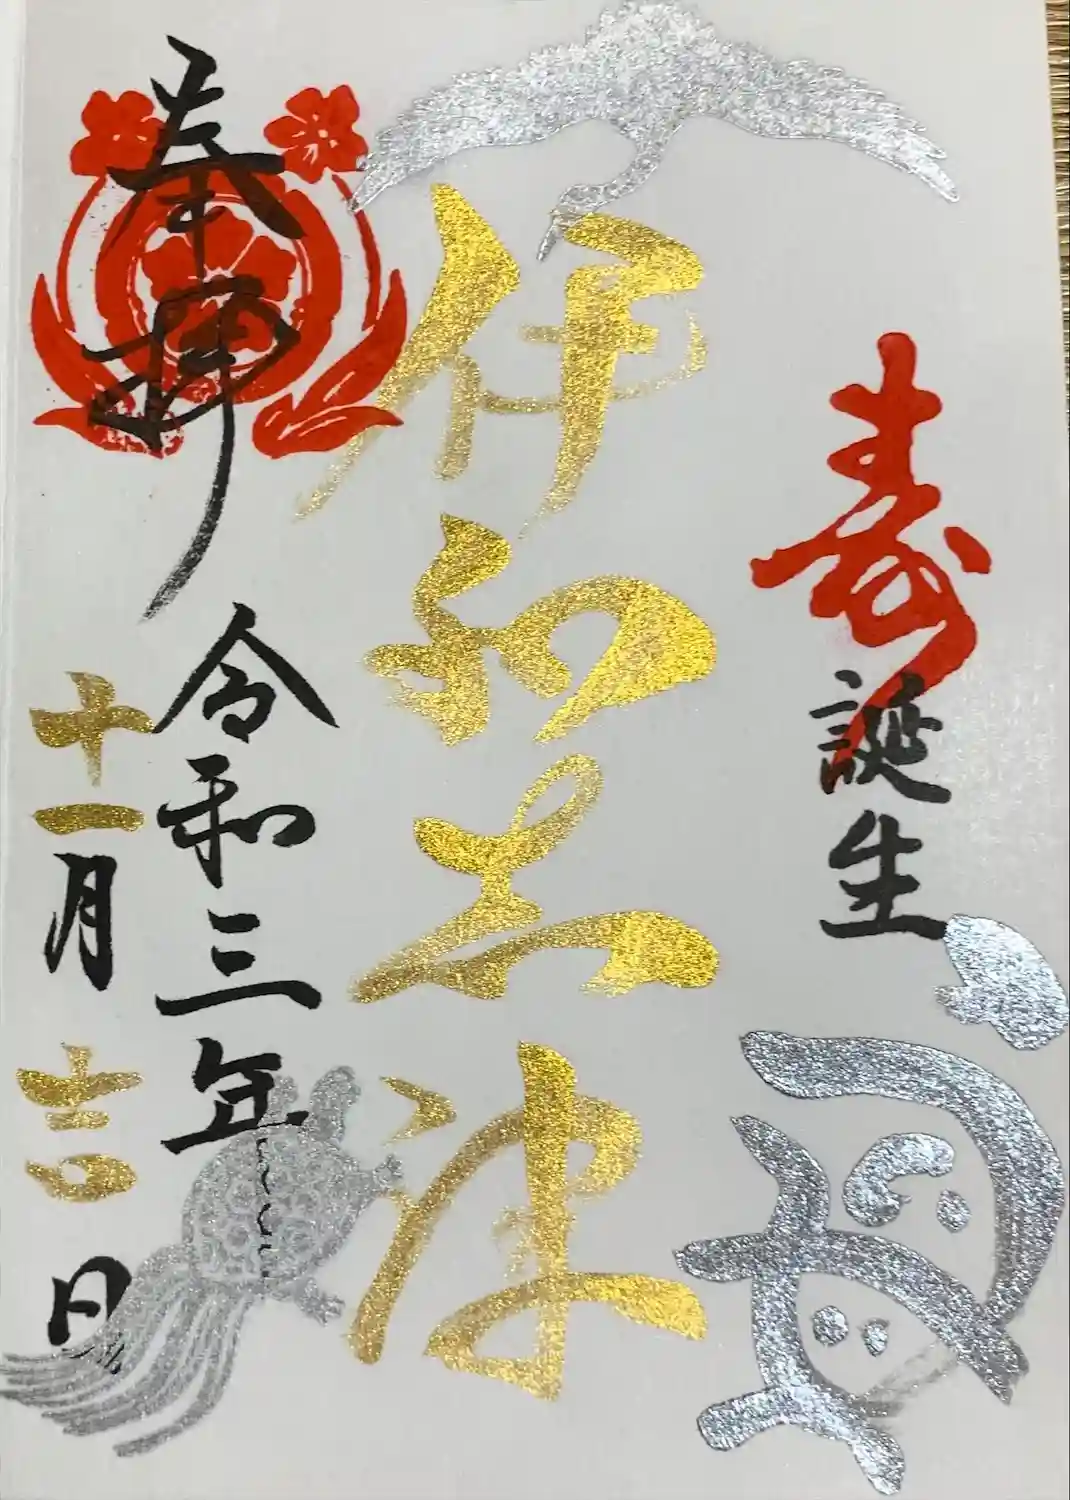 寿
誕生
伊和志津
奉拝
令和三年
十一月吉日